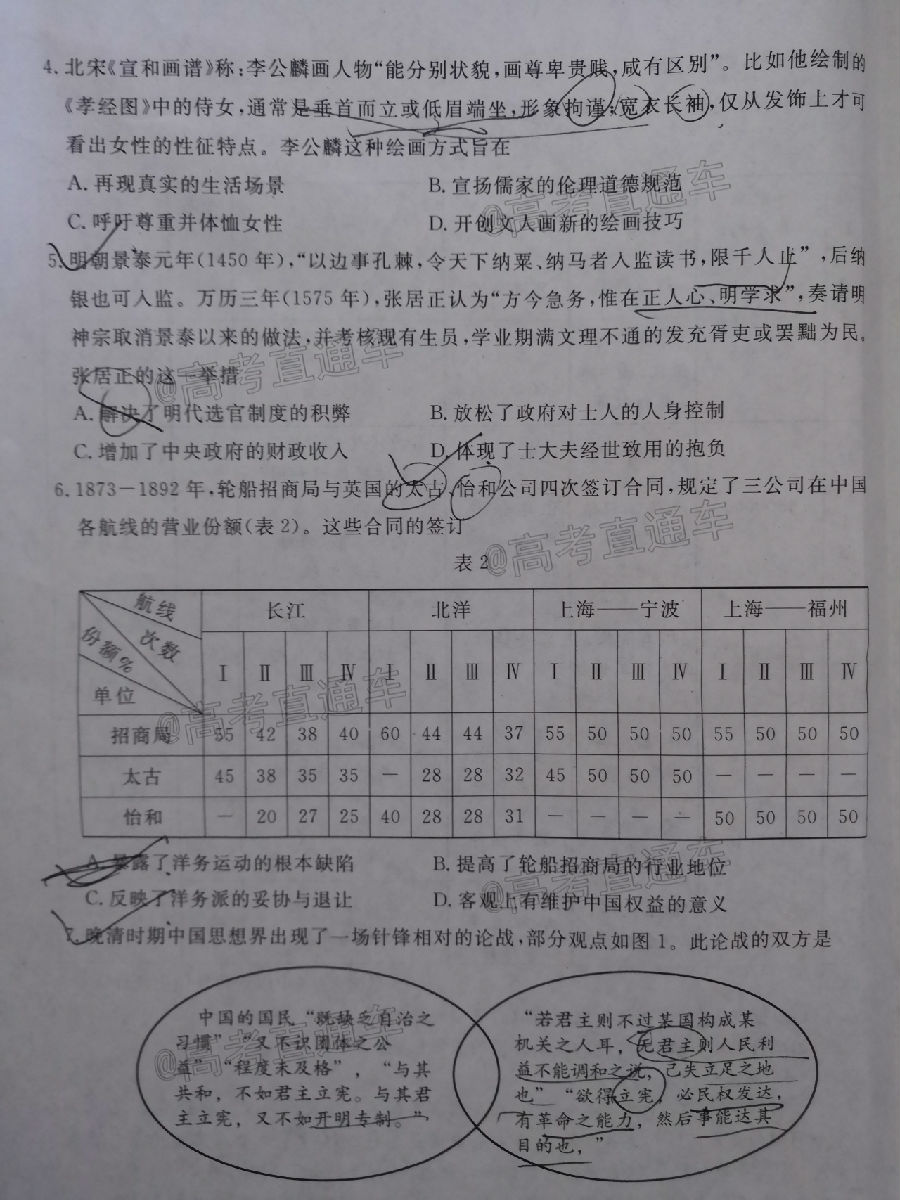 4、北宋《宣和画谱》称：李公麟画人物“能分别状貌，画尊卑贵贱，咸有区别”。比如他绘制的
《孝经图》中的侍女，通常是垂首而立或低眉端坐，形象拘谨；宽衣长袖，仅从发饰上才可
看出女性的性征特点。李公麟这种绘画方式旨在
A. 再现真实的生活场景 B. 宣扬儒家的伦理道德规范
C. 呼吁尊重并体恤女性 D. 开创文人画新的绘画技巧
5、明朝景泰元年(1450年)，“以边事孔棘，令天下纳粟、纳马者入监读书，限千人止”，后纳
银也可入监。万历三年(1575年)，张居正认为“方今急务，惟在正人心、明学求”，奏请明
神宗取消景泰以来的做法，并考核现有生员，学业期满文理不通的发充胥吏或罢黜为民。
张居正的这一举措
A. 解决了明代选官制度的积弊 B. 放松了政府对士人的人身控制
C. 增加了中央政府的财政收入 D. 体现了士大夫经世致用的抱负
6. 1873－1892年，轮船招商局与英国的太古、怡和公司四次签订合同，规定了三公司在中国
各航线的营业份额(表2)。这些合同的签订
表2
航线 长江 北洋 上海——宁波 上海——福州
次数
份额%
单位 Ⅰ Ⅱ Ⅲ Ⅳ Ⅰ Ⅱ Ⅲ Ⅳ Ⅰ Ⅱ Ⅲ Ⅳ Ⅰ Ⅱ Ⅲ Ⅳ
招商局 55 42 38 40 60 44 44 37 55 50 50 50 55 50 50 50
太古 45 38 35 35 — 28 28 32 45 50 50 50 — — — —
怡和 — 20 27 25 40 28 28 31 — — — — 50 50 50 50
A. 暴露了洋务运动的根本缺陷 B. 提高了轮船招商局的行业地位
C. 反映了洋务派的妥协与退让 D. 客观上有维护中国权益的意义
7. 晚清时期中国思想界出现了一场针锋相对的论战，部分观点如图1。此论战的双方是
中国的国民“既缺乏自治之
习惯”“又不识团体之公
益”“程度未及格”，“与其
共和，不如君主立宪。与其君
主立宪，又不如开明专制。”
“若君主则不过某国构成某
机关之人耳，无君主则人民利
益不能调和之说，已失立足之地
也”“欲得立宪，必民权发达，
有革命之能力，然后事能达其
目的也，”
@高考直通车
@高考直通车
@高考直通车
@高考直通车
@高考直通车
@高考直通车